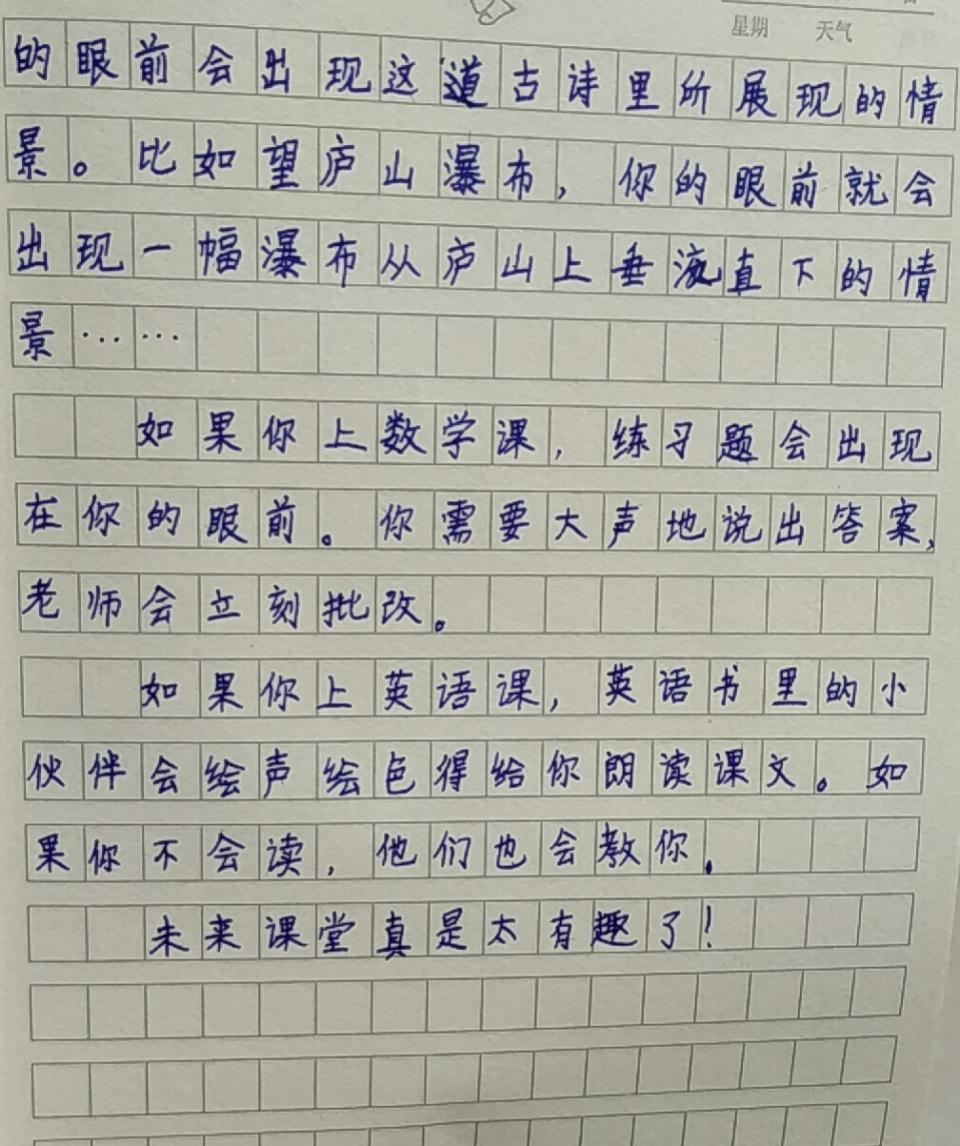 星期 天气
的眼前会出现这道古诗里所展现的情
景。比如望庐山瀑布，你的眼前就会
出现一幅瀑布从庐山上垂流直下的情
景……
如果你上数学课，练习题会出现
在你的眼前。你需要大声地说出答案，
老师会立刻批改。
如果你上英语课，英语书里的小
伙伴会绘声绘色得给你朗读课文。如
果你不会读，他们也会教你.
未来课堂真是太有趣了！